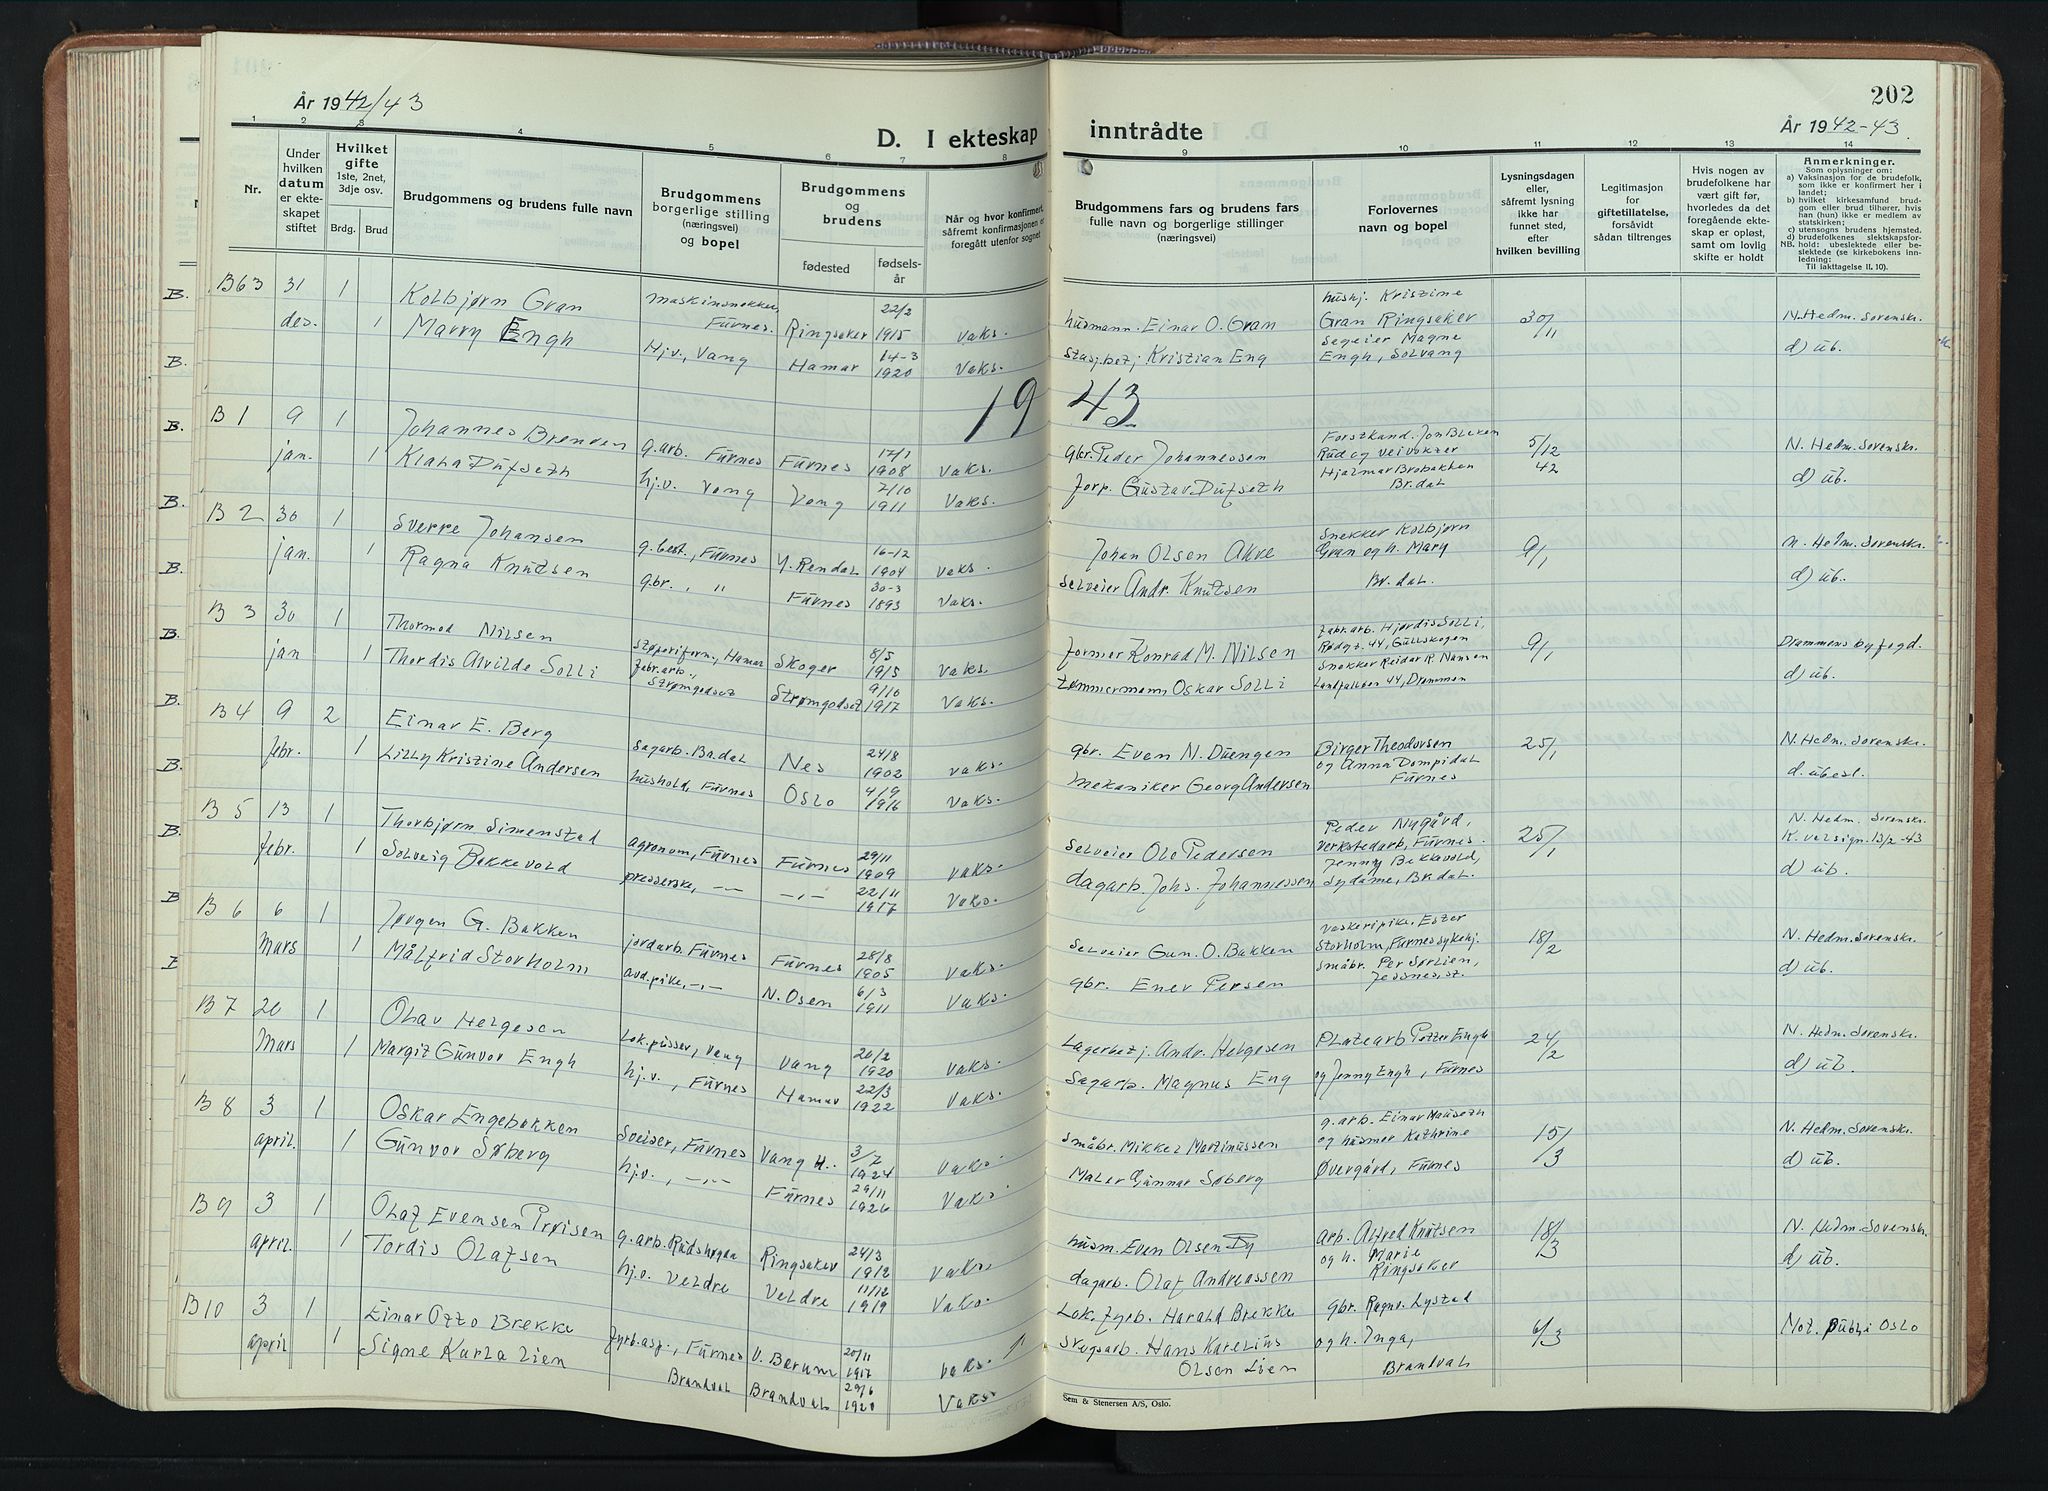 202
År 1942/43
D. I ekteskap inntrådte
År 1942-43.
1 2 3 4 5 6 7 8 9 10 11 12 13 14
Nr.
Under hvilken datum er ekteskapet stiftet
Hvilket gifte 1ste, 2net, 3dje osv.
Brdg. Brud
Brudgommens og brudens fulle navn
Brudgommens borgerlige stilling (næringsvei) og bopel
Brudgommens og brudens
fødested
fødselsår
Når og hvor konfirmert, såfremt konfirmasjonen er foregått utenfor sognet
Brudgommens fars og brudens fars fulle navn og borgerlige stillinger (næringsvei)
Forlovernes navn og bopel
Lysningsdagen eller, såfremt lysning ikke har funnet sted, efter hvilken bevilling
Legitimasjon for giftetillatelse, forsåvidt sådan tiltrenges
Hvis nogen av brudefolkene har vært gift før, hvorledes da det foregående ekteskap er opløst, samt om lovlig skifte er holdt
Anmerkninger.
Som oplysninger om:
a) Vaksinasjon for de brudefolk, som ikke er konfirmert her i landet;
b) hvilket kirkesamfund brudgom eller brud tilhører, hvis han (hun) ikke er medlem av statskirken;
c) utensogns brudens hjemsted.
d) brudefolkenes slektskapsforhold: ubeslektede eller beslektede (se kirkebokens innledning:
NB. Til iakttagelse II. 10).
B. B63 31 des. 1 Kolbjørn Gran maskinsnekker, Furnes. Ringsaker 22/2 1915 vaks. husmann. Einar O. Gran hushj. Kristine Gran Ringsaker 30/11 N. Hedm. Sorenskr.
B. 1 Marry Engh Hj.v., Vang Hamar 14-3 1920 Vaks. Stasj.betj Kristian Eng Segeier Magne Engh, Solvang d) üb.
1943
B. B 1 9 jan. 1 Johannes Brenden g.arb. Furnes Furnes 17/1 1908 vaks. gbr. Peder Johannessen Forstkand. Jon Bleken Råd og veivokter 5/12 42 N. Hedm. Sorenskr.
B. 1 Klara Dufseth hj.v. Vang Vang 7/10 1911 Vaks. forp. Gustav Dufseth Hjalmar Brobakken Br.dal d) üb.
B 2 30 jan. 1 Sverre Johansen g.best., Furnes Y. Rendal 16-12 1904 vaks. Johan Olsen Akre Snekker Kolbjørn Gran og h. Mary 9/1 N. Hedm. Sorenskr.
B. 1 Ragna Knutsen gbr., " Furnes 30-3 1893 Vaks. Selveier Andr. Knutsen Br. dal. d) üb.
B. B 3 30 jan 1 Thormod Nilsen Støperiform., Hamar Skoger 8/5 1915 vaks. former Konrad M. Nilsen fabr.arb. Hjørdis Solli, Rødgt. 44, Gullskogen 9/1 Drammens byfogd.
B. 1 Thordis Alvilde Solli febr.arb., Strømgodset Strømgodset 9/10 1917 Vaks. tømmermann Oskar Solli Snekker Reidar R. Nansen Landfalløen 44, Drammen d) üb.
B 4 9 febr. 2 Einar E. Berg Sagarb. Br.dal Nes 24/8 1902 vaks. gbr. Even N. Duengen Birger Theodorsen 25/1 N. Hedm. Sorenskr.
B. 1 Lilly Kristine Andersen hushold, Furnes Oslo 4/9 1916 Vaks. mekaniker Georg Andersen og Anna Dompidal Furnes d. übesl.
B. B 5 13 febr. 1 Thorbjørn Simenstad agronom, Furnes Furnes 29/11 1909 vaks. Selveier Ole Pedersen Peder Nygård, verkstedarb, Furnes. 25/1 N. Hedm. Sorenskr. K. velsign. 13/2-43
B 1 Solveig Bekkevold presserske, -"- -"- 22/11 1917 Vaks. dagarb. Johs. Johannessen Jenny Bekkevold, Sydame, Br.dal. d) üb.
B 6 6 Mars 1 Jørgen G. Bakken jordarb. Furnes Furnes 28/8 1905 vaks. Selveier Gun. O. Bakken vaskeripike. Ester Storholm, Furnes sykehj. 18/2 N. Hedm. Sorenskr.
1 Målfrid Storholm avd.pike, -"- N. Osen 6/3 1911 Vaks. gbr. Ener Persen småbr. Per Sørlien, Jessnes, st. d) üb.
B 7 20 Mars 1 Olav Helgesen Lok.pusser, Vang Vang 20/2 1920 vaks. Lagerbetj. Andr. Helgesen Platearb Petter Engh 24/2 N. Hedm. Sorenskr.
1 Margit Gunvor Engh hj.v., Furnes Hamar 22/3 1922 Vaks. Sagarb. Magnus Eng og Jenny Engh, Furnes d) üb.
B 8 3 april. 1 Oskar Engebakken Sveiser, Furnes Vang H. 3/7 1924 vaks. Småbr. Mikkel Martinussen g. arb. Einar Mauseth 15/3 N. Hedm. Sorenskr.
1 Gunvor Søberg hj.v., -"- Furnes 29/11 1926 Vaks. Maler Gunnar Søberg og husmor Kathrine Øvergård, Furnes d) üb.
B 9 3 april. 1 Olaf Evensen Prøisen g.arb. Rudshøgda Ringsaker 24/3 1912 vaks. husm. Even Olsen Dy arb. Alfred Knutsen 18/3 N. Hedm. Sorenskr.
1 Tordis Olafsen hj.v. Veldre Veldre 11/12 1919 Vaks. dagarb. Olaf Andreassen og h. Marie Ringsaker d) üb.
B 10 3 april 1 Einar Otto Brekke fyrb.asp., Furnes V. Bærum 20/11 1917 vaks. Lok. fyrb. Harald Brekke gbr. Ragnv. Lystad 6/3 Not. Publ i Oslo
1 Signe Karla Lien Brandval Brandval 29/6 1920 Vaks. Skogsarb. Hans Karelius Olsen Lien og h. Inga, Brandval
Sem & Stenersen A/S, Oslo.